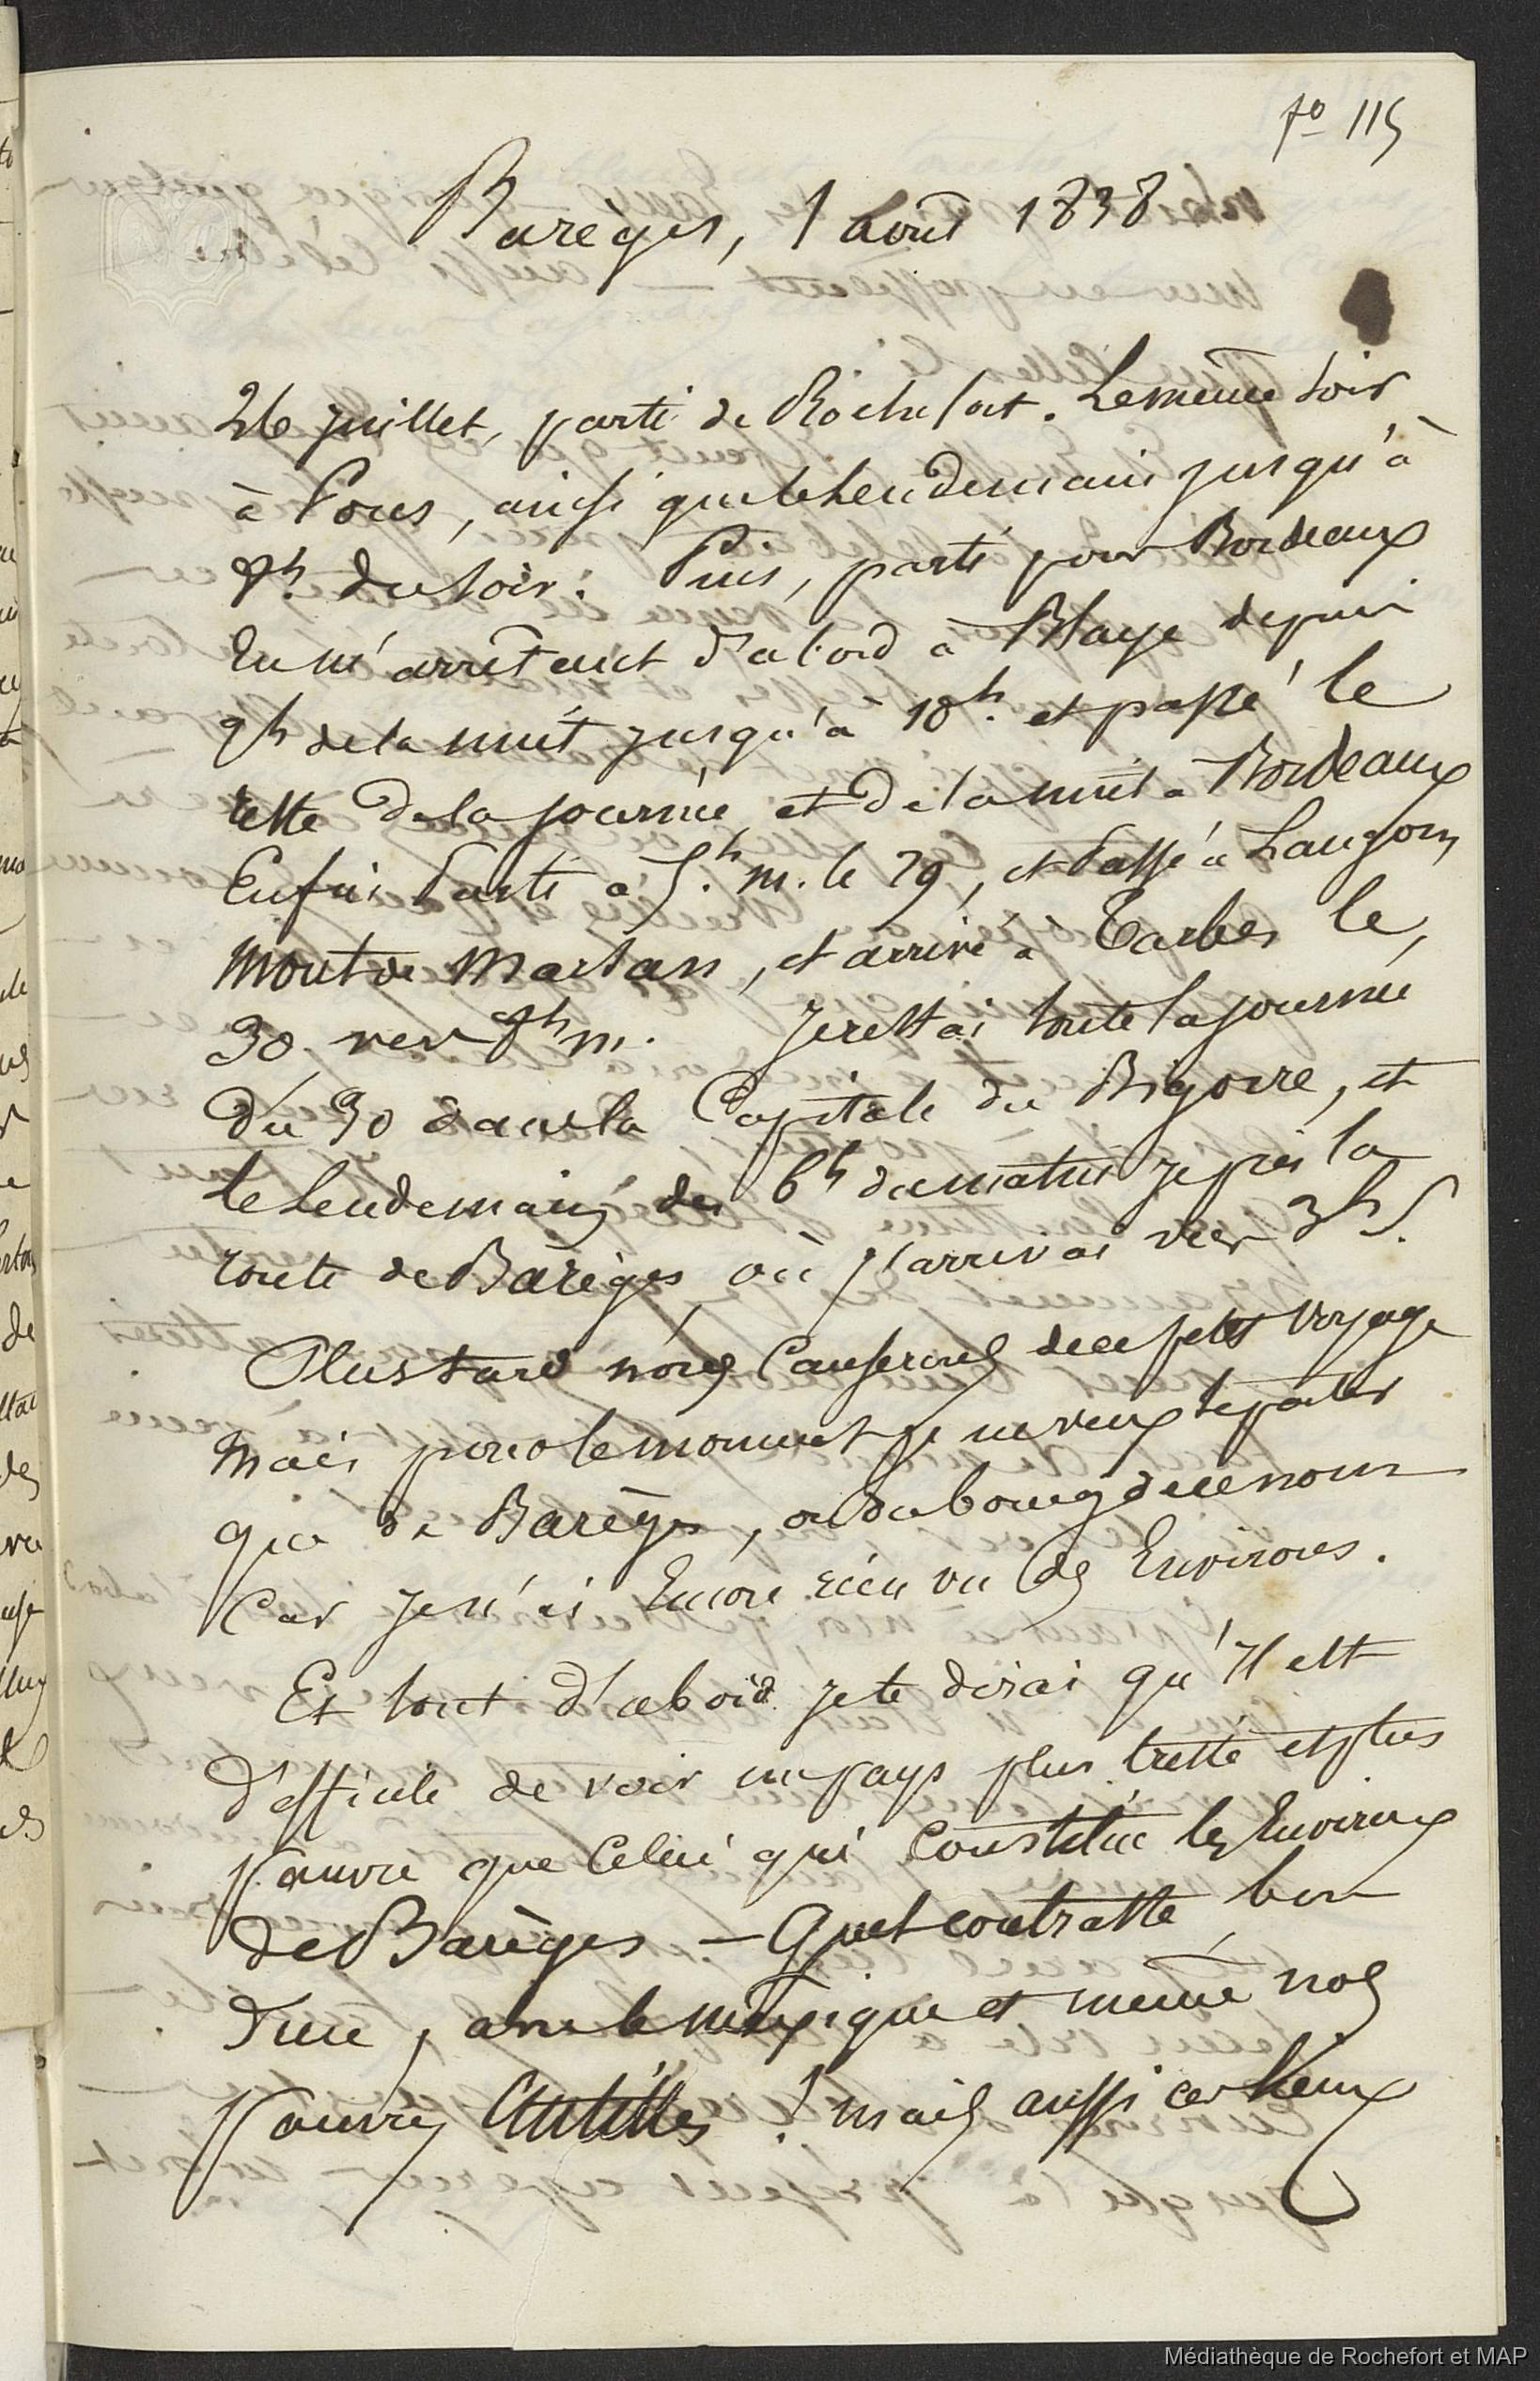 fo 115
Barèges, 1 Août 1838
26 juillet, parti de Rochefort. Le même soir
à Pons, ainsi que le lendemain jusqu'à
8h. du soir. Puis, parti pour Bordeaux
En m'arrêtant d'abord à Blaye depuis
9h de la nuit jusqu'à 10h. et passé le
reste de la journée et de la nuit à Bordeaux
Enfin Parti à 5.h m. le 29, et Passé à Langon,
Mont de Marsan, et arrivé à Tarbes le,
30 vers 8h m. Je restai toute la journée
du 30 dans la Capitale du Bigorre, et
le Lendemain, dès 6h du matin je pris la
route de Barèges, où j'arrivai vers 3h S.
Plus tard nous Causerons de ce petit voyage
Mais pour le moment je ne veux te parler
que de Barèges, ou du bourg de ce nom
Car je n'ai Encore rien vu des Environs.
Et tout d'abord je te dirai qu'Il est
difficile de voir un pays plus triste et plus
pauvre que Celui qui Constitue les Environs
de Barèges — Quel contraste, bon
dieu, avec le Mexique et même nos
pauvres Antilles ! mais aussi ces lieux
Médiathèque de Rochefort et MAP